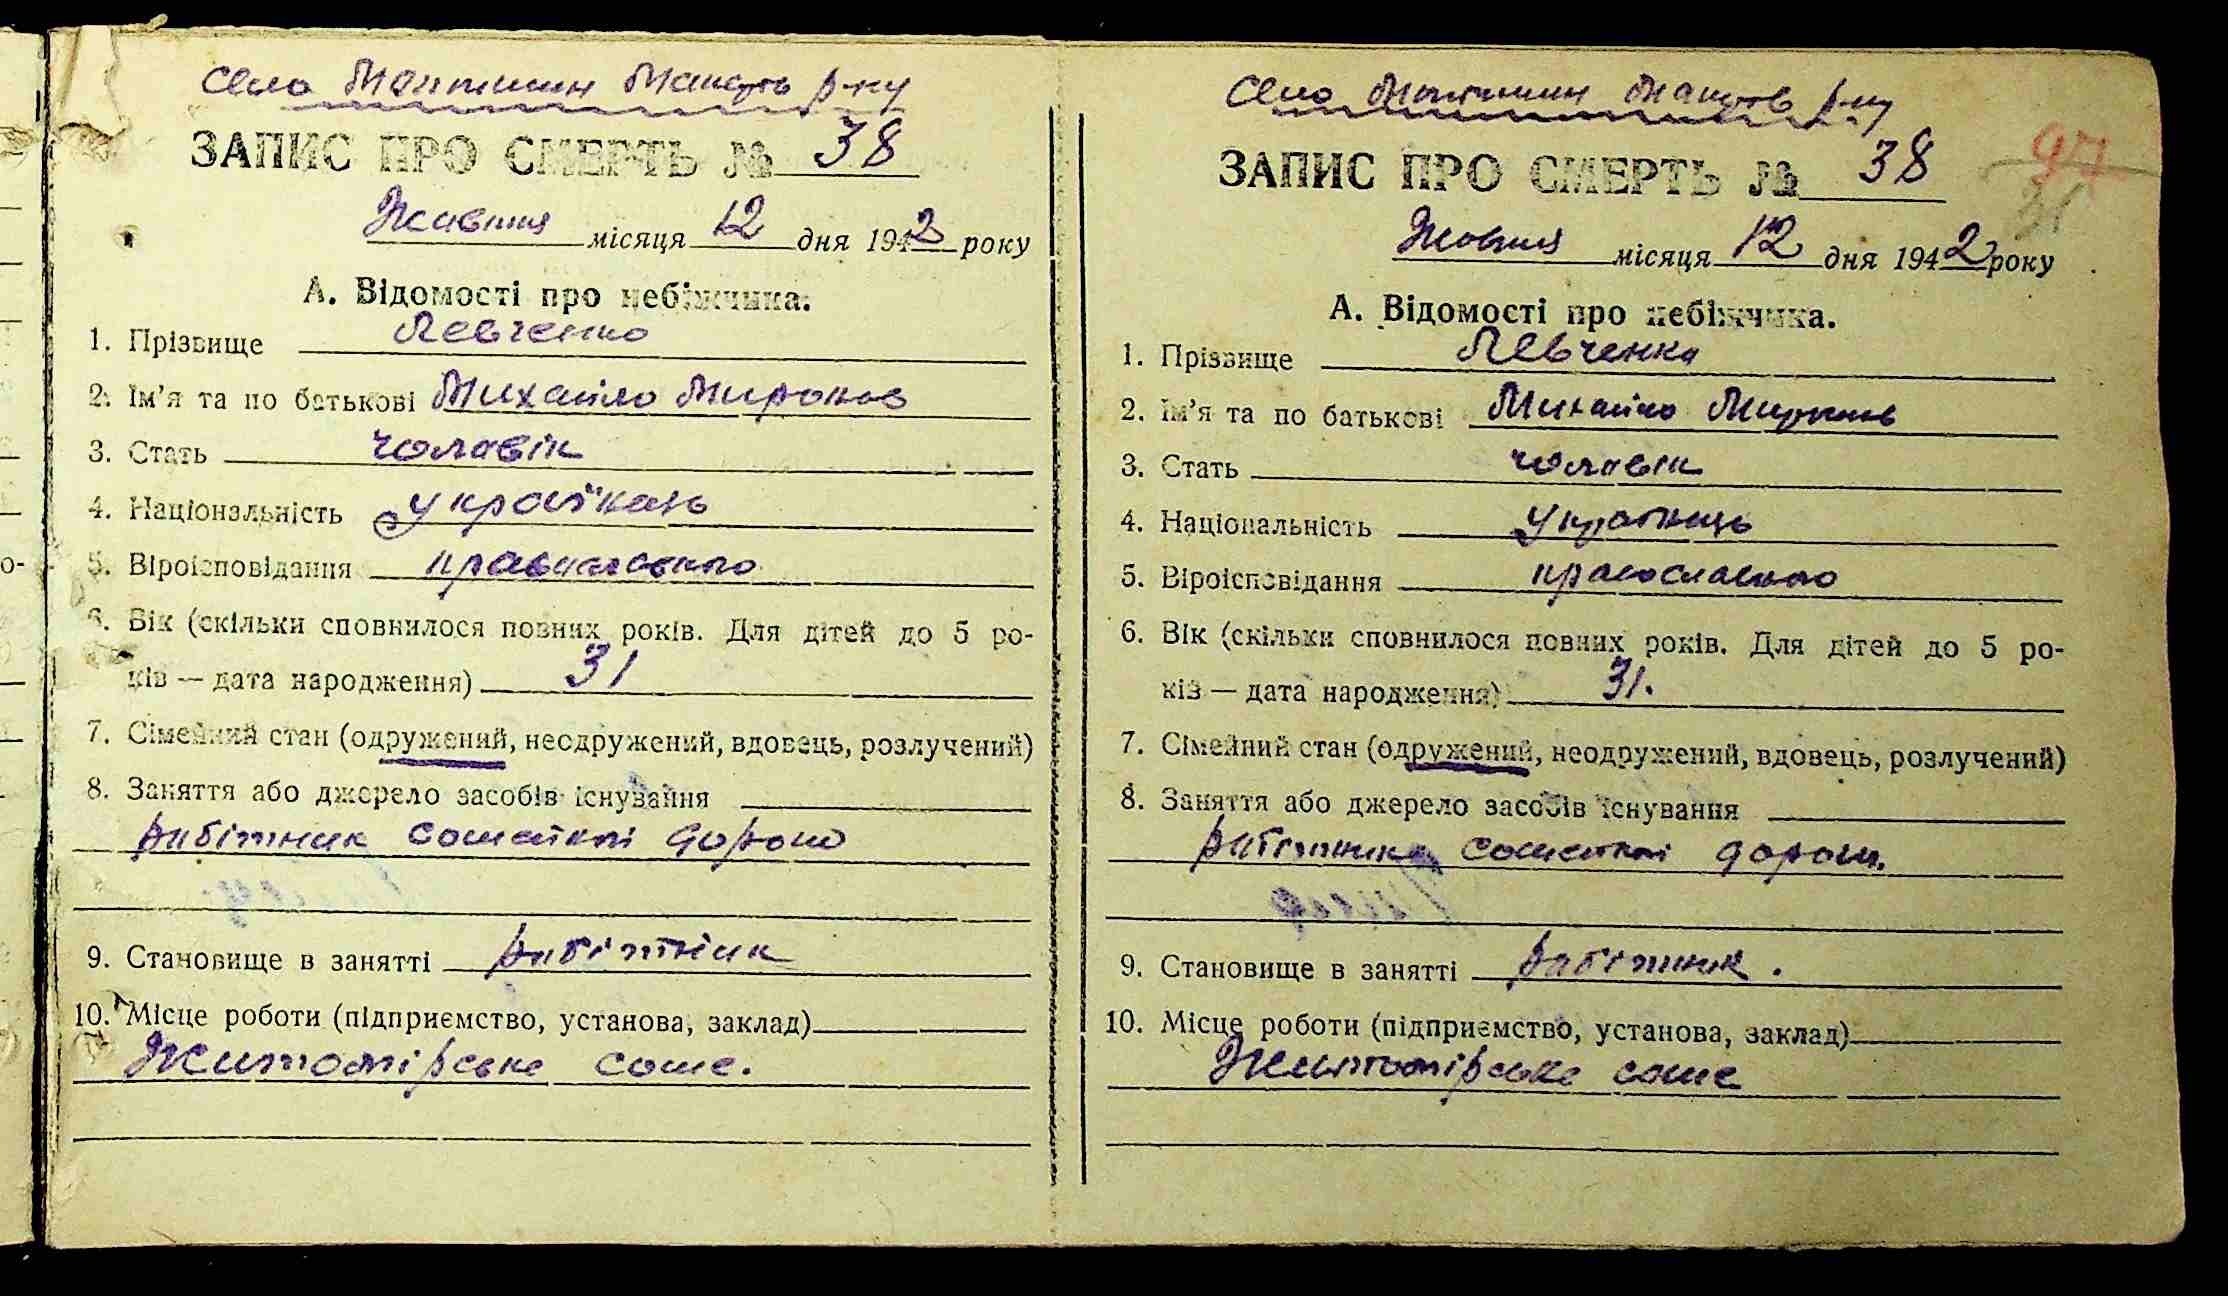 Село Мотижин Макарів р-ну
ЗАПИС ПРО СМЕРТЬ № 38
Жовтня місяця 12 дня 1942 року
А. Відомості про небіжчика.
1. Прізвище Левченко
2. Ім'я та по батькові Михайло Миронов
3. Стать чоловік
4. Національність українець
5. Віроісповідання православного
6. Вік (скільки сповнилося повних років. Для дітей до 5 ро-
ків — дата народження) 31
7. Сімейний стан (одружений, неодружений, вдовець, розлучений)
8. Заняття або джерело засобів існування
робітник сошейної дороги
9. Становище в занятті робітник
10. Місце роботи (підприємство, установа, заклад)
Житомірське соше.
Село Мотижин Макарів р-ну
97
ЗАПИС ПРО СМЕРТЬ № 38
Жовтня місяця 12 дня 1942 року
А. Відомості про небіжчика.
1. Прізвище Левченко
2. Ім'я та по батькові Михайло Миронов
3. Стать чоловік
4. Національність українець
5. Віроісповідання православного
6. Вік (скільки сповнилося повних років. Для дітей до 5 ро-
ків — дата народження) 31.
7. Сімейний стан (одружений, неодружений, вдовець, розлучений)
8. Заняття або джерело засобів існування
робітник сошейної дороги.
9. Становище в занятті робітник.
10. Місце роботи (підприємство, установа, заклад)
Житомірське соше